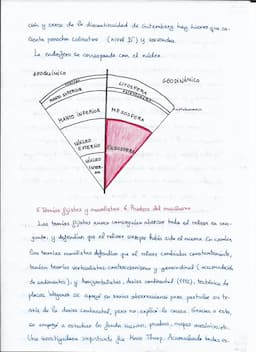 ción y cerca de la discontinuidad de Gutemberg hay hierro que as-
ciende penachos calientes (Nivel D") y ascienden.
La endosfera se corresponde con el núcleo.
GEOQUÍMICO
GEODINÁMICO
LITOSFERA
MANTO SUPERIOR
MANTO INFERIOR
MESOSFERA
NÚCLEO EXTERNO
ENDOSFERA
NÚCLEO INTER-
NO
5. Teorías fijistas y movilistas. 6. Pruebas del movilismo
Las teorías fijistas nunca consiguieron abarcar todo el relieve en con-
junto, y defendían que el relieve siempre había sido el mismo. En cambio
las teorías movilistas defendían que el relieve cambiaba constantemente,
había teorías verticalistas: contraccionismo y geosinclinal (acumulación
de sedimentos), y horizontalistas, deriva continental (1912), tectónica de
placas. Wegener se apoyó en varias observaciones para postular su te-
oría de la deriva continental, pero no explicó la causa. Gracias a esto,
se empezó a estudiar los fondos marinos, pruebas, mapas oceánicos...
Una investigadora importante fue Marie Tharp. Acumulando todas es-